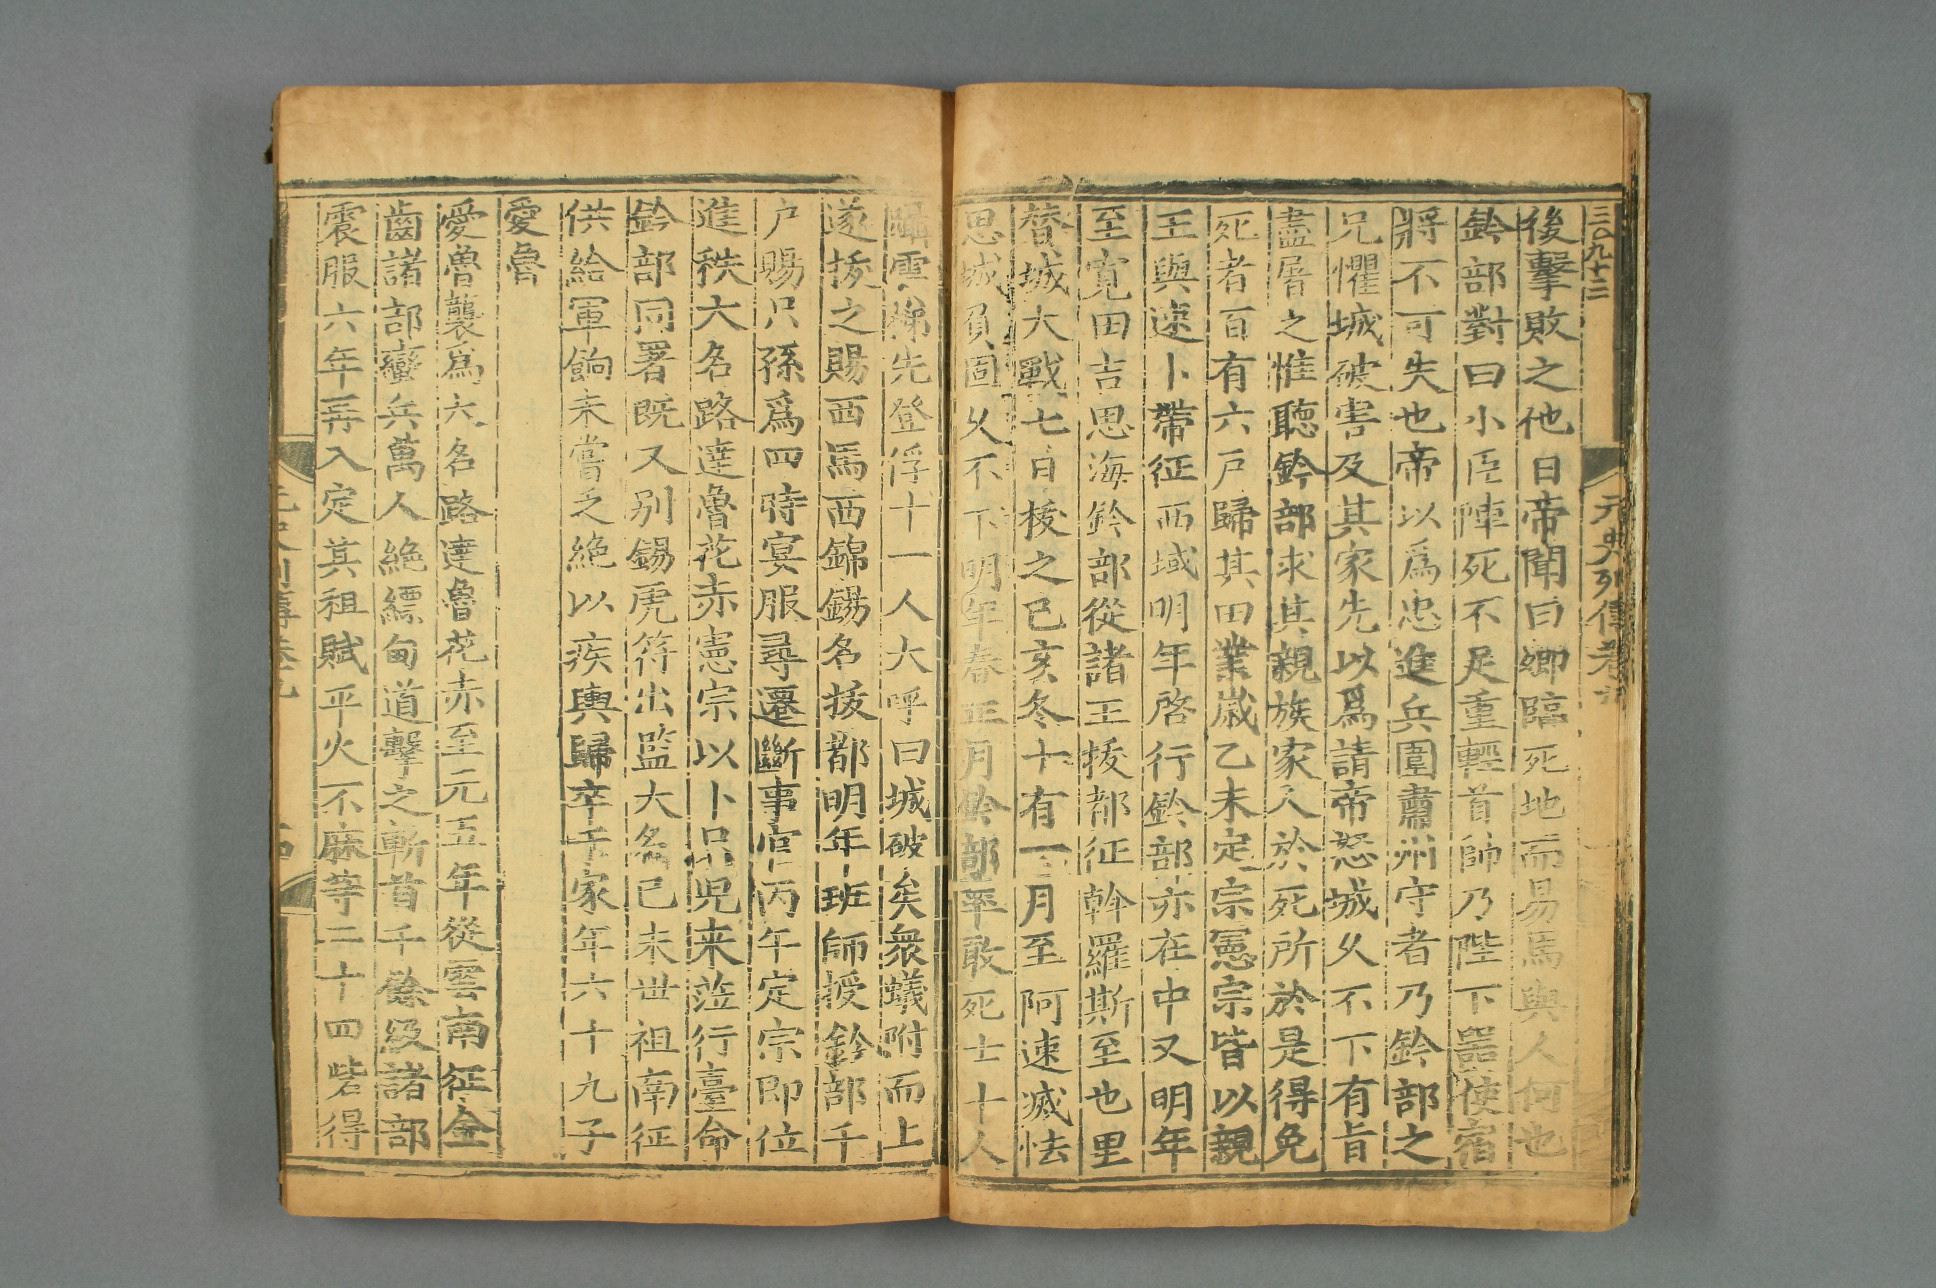 三〇九十二
元史列傳卷九
後擊敗之他日帝聞曰卿臨死地而易馬與人何也
鈐部對曰小臣陣死不足重輕首帥乃陛下器使宿
將不可失也帝以爲忠進兵圍肅州守者乃鈐部之
兄懼城破害及其家先以爲請帝怒城久不下有旨
盡屠之惟聽鈐部求其親族家人於死所於是得免
死者百有六戶歸其田業歳乙未定宗憲宗皆以親
王與速卜帶征西域明年啓行鈐部亦在中又明年
至寛田吉思海鈐部從諸王拔都征斡羅斯至也里
替城大戰七日拔之已亥冬十有一月至阿速滅怯
思城負固久不下明年春正月鈐部率敢死士十人
躡雲梯先登俘十一人大呼曰城破矣衆蟻附而上
遂拔之賜西馬西錦錫名拔都明年班師授鈐部千
户賜只孫爲四時宴服尋遷斷事官丙午定宗即位
進秩大名路達魯花赤憲宗以卜只児来蒞行臺命
鈐部同署既又别錫虎符出監大名己未世祖南征
供給軍餉未嘗乏絶以疾輿歸卒于家年六十九子
愛魯
愛魯襲爲大名路達魯花赤至元五年從雲南征金
齒諸部蠻兵萬人絶縹甸道擊之斬首千餘級諸部
震服六年再入定其租賦平火不麻等二十四砦得
元史列傳卷九